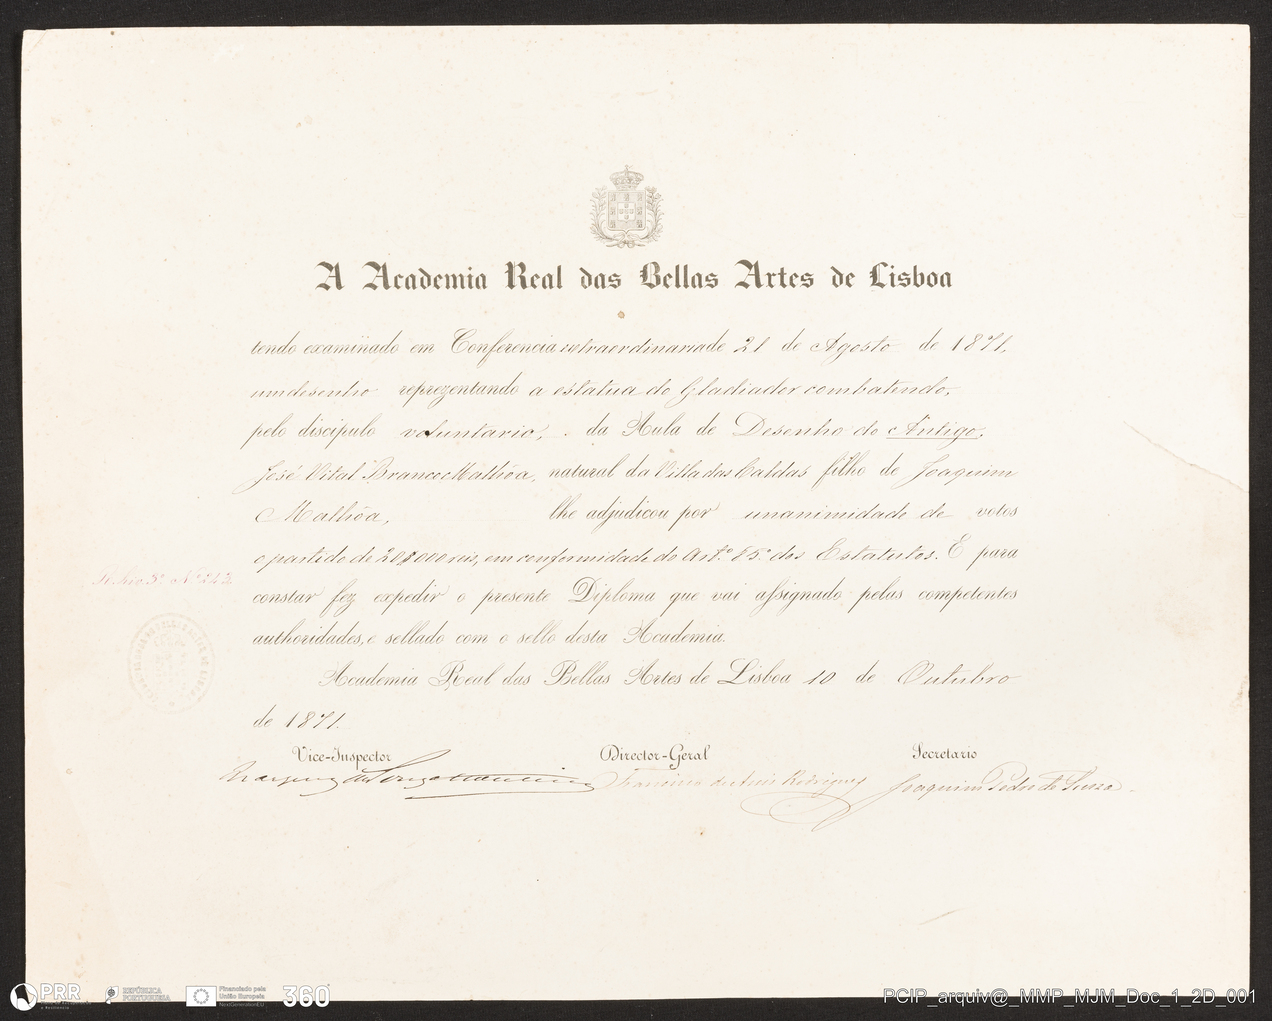 A Academia Real das Bellas Artes de Lisboa
tendo examinado em Conferencia extraordinaria de 21 de Agosto de 1871,
um desenho reprezentando a estatua do Gladiador combatendo,
pelo discipulo voluntario, da Aula de Desenho do Antigo,
José Vital Branco Malhôa, natural da Villa das Caldas filho de Joaquim
Malhôa, lhe adjudicou por unanimidade de votos
o partido de 20$000 reis, em conformidade do Artº 65º dos Estatutos. E para
constar fez expedir o presente Diploma que vai assignado pelas competentes
authoridades, e sellado com o sello desta Academia.
Academia Real das Bellas Artes de Lisboa 10 de Outubro
de 1871.
Vice-Inspector Director-Geral Secretario
Marquez de Souza Francisco de Assis Rodrigues Joaquim Pedro de Souza
PRR
REPÚBLICA PORTUGUESA
Financiado pela União Europeia
NextGenerationEU
360
PCIP_arquiv@_MMP_MJM_Doc_1_2D_001